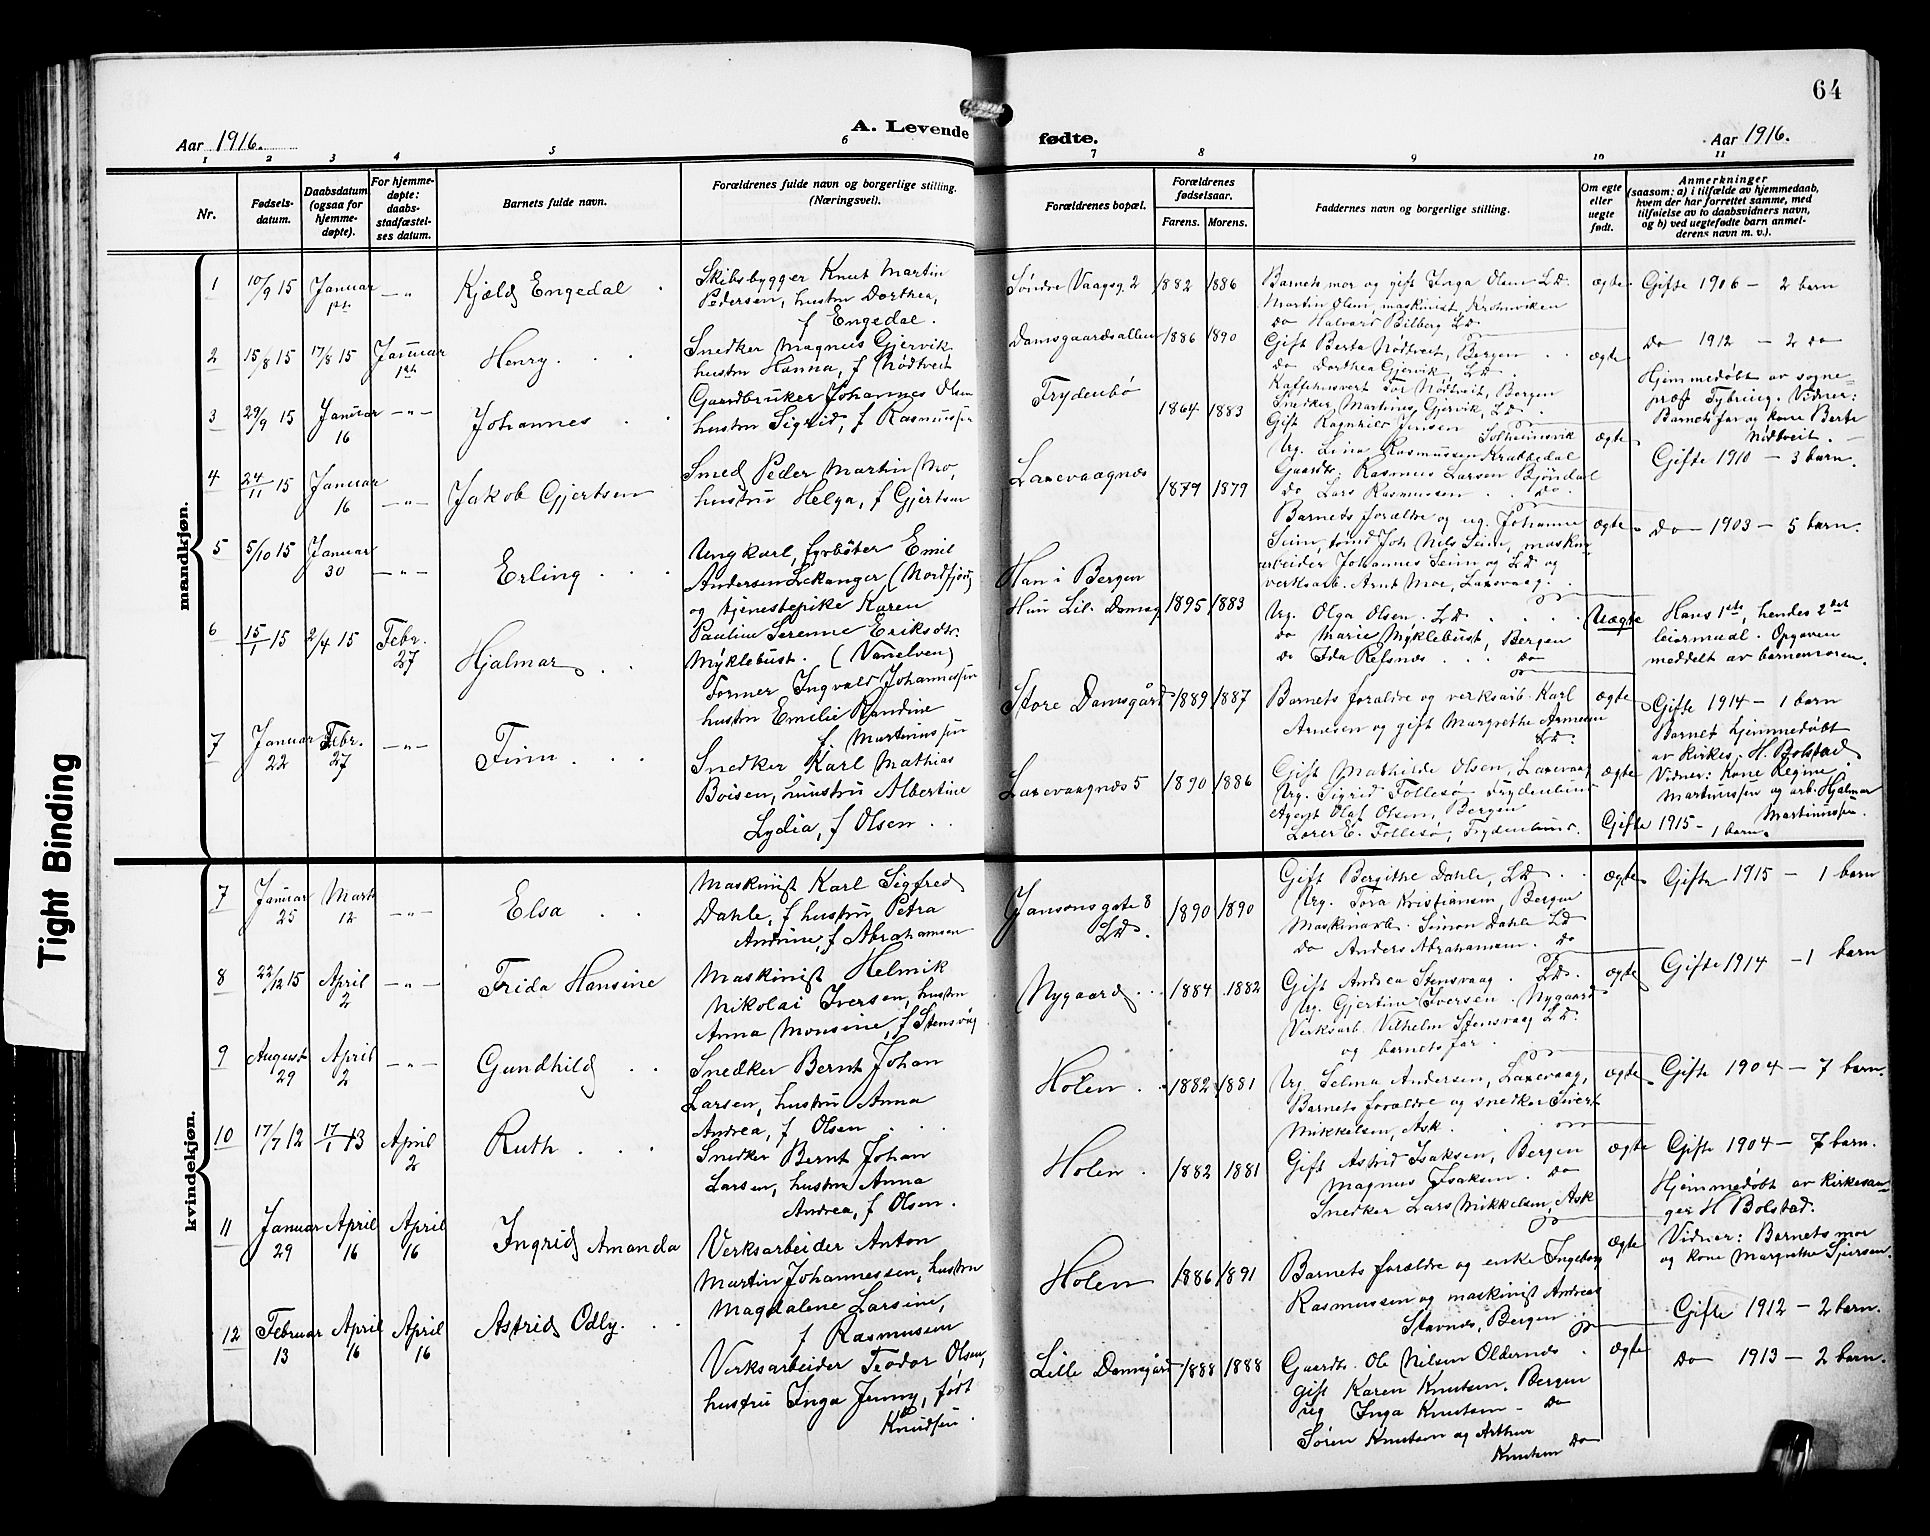 64
Aar 1916.
A. Levende
fødte.
Aar 1916.
1 2 3 4 5 6 7 8 9 10 11
Nr.
Fødsels-
datum.
Daabsdatum
(ogsaa for
hjemme-
døpte).
For hjemme-
døpte:
daabs-
stadfæstel-
ses datum.
Barnets fulde navn.
Forældrenes fulde navn og borgerlige stilling.
(Næringsvei).
Forældrenes bopæl.
Forældrenes
fødselsaar.
Farens. Morens.
Faddernes navn og borgerlige stilling.
Om egte
eller
uegte
født.
Anmerkninger
(saasom: a) i tilfælde av hjemmedaab,
hvem der har forrettet samme, med
tilføielse av to daabsvidners navn,
og b) ved uegtefødte barn anmel-
derens navn m. v.).
mandkjøn.
1 10/9 15 Januar 1ste —„— Kjeld Engedal
Skibsbygger Knut Martin
Pedersen, hustru Dorthea,
f Engedal.
Søndre Vaagsg. 2 1882 1886
Barnets mor og gift Inga Olsen Ld.
Martin Olsen, maskinist,
do Halvard Bilberg Ld.
ægte
Gifte 1906 — 2 barn
2 15/8 15 17/8 15 Januar 1ste Henry
Snedker Magnus Gjervik
hustru Hanna, f Nødtveit
Damsgaardsalleen 1886 1890
Gift Berta Nødtveit, Bergen
do Dorthea Gjervik, Ld.
Kaffehusvert Tor Nødtveit, Bergen
Snedker Martinus Gjervik, Ld.
ægte
do 1912 — 2 do
Hjemmedøbt av sogne-
prest Tybring. Vidner:
Barnets far og kone Berte
Nødtveit.
3 29/9 15 Januar 16 —„— Johannes
Gaardbruker Johannes Olsen
hustru Sigrid, f Rasmussen
Frydenbö 1864 1883
Gift Ragnhild Jensen
Solheimsvik
Ug. Lina Rasmussen Krabbedal
Gaardb. Rasmus Larsen Bjöndal
do Lars Rasmussen do.
ægte
Gifte 1910 — 3 barn.
4 24/11 15 Januar 16 —„— Jakob Gjertsen
Smed Peder Martin Mo,
hustru Helga, f Gjertsen
Laxevaagnes 1879 1879
Barnets forældre og ug. Johanne
Seim, tømd Joh Nils Seim, maskin-
arbeider Johannes Seim og Ld og
verksarb. Arnt Moe, Laxevaag.
ægte
do 1903 — 5 barn.
5 5/10 15 Januar 30 —„— Erling
Ungkarl, fyrbøter Emil
Andersen Lekanger (Nordfjord)
og tjenestepike Karen
Pauline Serenne Eriksdtr.
Myklebust. (Vanelven)
Han i Bergen
Hun Lil. Damsg 1895 1883
Ug. Olga Olsen. Ld
do Marie Myklebust, Bergen
do Ida Refsnes do
Uægte
Hans 1ste, hendes 2det
leiermaal. Opgaven
meddelt av barnemoren.
6 15/1 15 2/4 15 Febr. 27 Hjalmar
Former Ingvald Johannessen
hustru Emilie Randine
f Martinussen
Store Damsgård 1889 1887
Barnets forældre og verksarb. Karl
Arnesen og gift Margrethe Arnesen
Ld.
ægte
Gifte 1914 — 1 barn
Barnet hjemmedøbt
av kirkes. H. Bolstad
Vidner: Kone Regine
Martinussen og arb. Hjalmar
Martinussen.
7 Januar 22 Febr. 27 —„— Finn
Snedker Karl Mathias
Boisen, hustru Albertine
Lydia, f Olsen
Laxevaagnes 5 1890 1886
Gift Mathilde Olsen, Laxevaag
Ug. Sigrid Follesø Frydenlund
Agent Olaf Olsen, Bergen
Lærer E. Follesø, Frydenlund.
ægte
Gifte 1915 — 1 barn.
kvindekjøn.
7 Januar 25 Marts 12 —„— Elsa
Maskinist Karl Sigfred
Dahle, f hustru Petra
Andrine f Abrahamsen
Jansonsgate 8
Ld. 1890 1890
Gift Bergithe Dahle, Ld
Ug. Tora Kristiansen, Bergen
Maskinarb. Simon Dahle Ld
do Anders Abrahamsen. do
ægte
Gifte 1915 — 1 barn
8 22/12 15 April 2 —„— Frida Hansine
Maskinist Helmik
Nikolai Iversen, hustru
Anna Monsine, f Stensvåg
Nygaard 1884 1882
Gift Andrea Stensvaag. Ld.
Ug. Gjertine Iversen. Nygaard
Verksarb. Vilhelm Stensvaag Ld.
og barnets far.
ægte
Gifte 1914 — 1 barn
9 August 29 April 2 —„— Gundhild
Snedker Bernt Johan
Larsen, hustru Anna
Andrea, f Olsen
Holen 1882 1881
Ug. Selma Andersen, Laxevaag,
Barnets forældre og snedker Sivert
Mikkelsen, Ask.
ægte
Gifte 1904 — 7 barn.
10 17/7 12 17/1 13 April 2 Ruth
Snedker Bernt Johan
Larsen, hustru Anna
Andrea, f Olsen.
Holen 1882 1881
Gift Astrid Isaksen, Bergen
Magnus Isaksen. do
Snedker Lars Mikkelsen, Ask
ægte
Gifte 1904 — 7 barn.
Hjemmedøbt av kirkesan-
ger H Bolstad.
Vidner: Barnets mor
og kone Margrethe Sjursen.
11 Januar 29 April 16 April 16 Ingrid Amanda
Verksarbeider Anton
Martin Johannessen, hustru
Magdalene Larsine,
f Rasmussen
Holen 1886 1891
Barnets forældre og enke Ingeborg
Rasmussen og maskinist Andreas
Stavnes, Bergen
ægte
Gifte 1912 — 2 barn.
12 Februar 13 April 16 April 16 Astrid Odly.
Verksarbeider Teodor Olsen,
hustru Inga Jenny, født
Knudsen.
Lille Damsgård 1888 1888
Gaardb. Ole Nilsen Oldernes
gift Karen Knutsen, Bergen
ug Inga Knutsen — do
Søren Knutsen og Arthur
Knutsen do
ægte
do 1913 — 2 barn.
Tight Binding